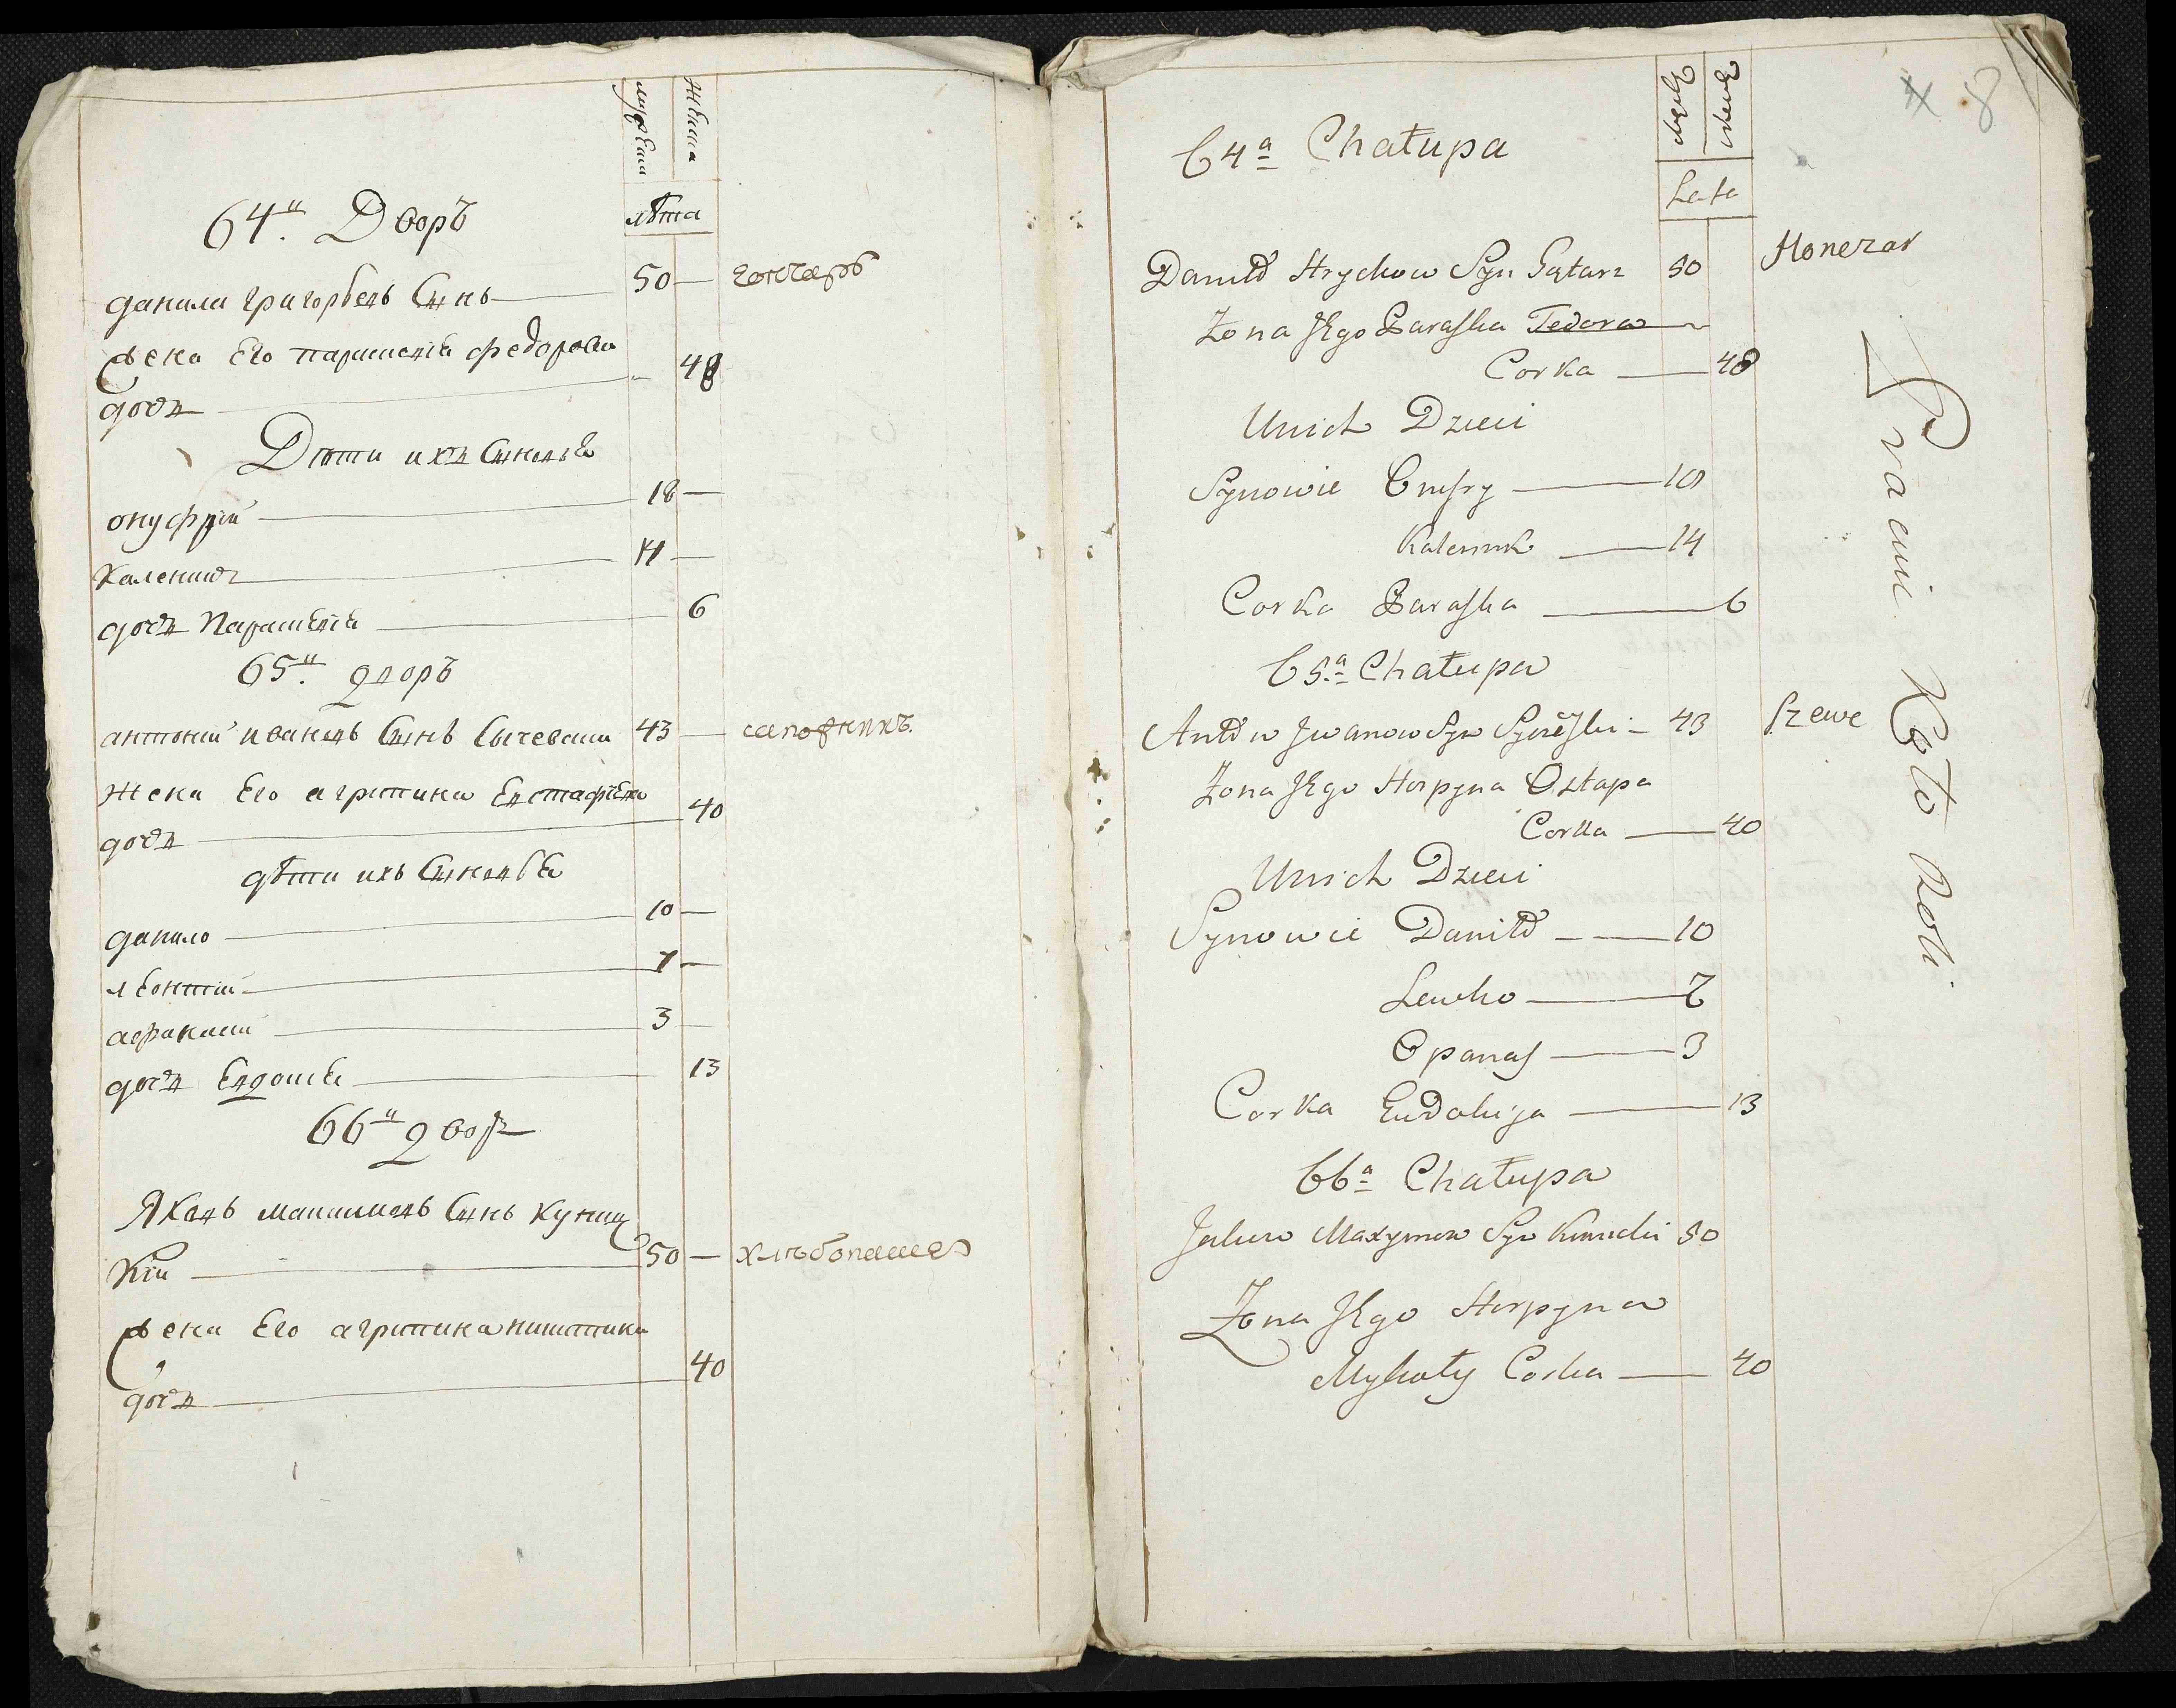 мужеска
женска
64й Дворъ
лѣта
данила григорьевъ Сынъ 50 — гончаръ
жена Его параскевія федорова
дочь 48
Дѣти ихъ Сыновья
онуфрій 18 —
каленикъ 14 —
дочь Параскевія 6
65й дворъ
антоній ивановъ Сынъ 43 — сапожникъ.
жена Его агрипина Евстафѣева
дочь 40
дѣти ихъ Сыновья
данило 10 —
леонтій 7 —
афанасій 3 —
дочь Евдокія 13
66й дворъ
Яковъ максимовъ Сынъ куниц
кій 50 — хлѣбопашецъ
жена Его агрипина никитина
дочь 40
8
Męzka
Zenska
64ª Chałupa
Lata
Daniło Hrychow Syn 50 Honczar
Zona Jego Paraska Fedora
Corka — 48
Unich Dzieci
Synowie Onufry — 18
Kalennik — 14
Corka Paraska — 6
65ª Chałupa
Anton Jwanow Syn 43 Szewc
Zona Jego Horpyna Ostapa
Corka — 40
Unich Dzieci
Synowie Daniło — 10
Lewko — 7
Opanas — 3
Corka Eudokija — 13
66ª Chałupa
Jakow Maxymow Syn Kunicki 50
Zona Jego Horpyna
Mykoły Corka — 40
Koło Roli.